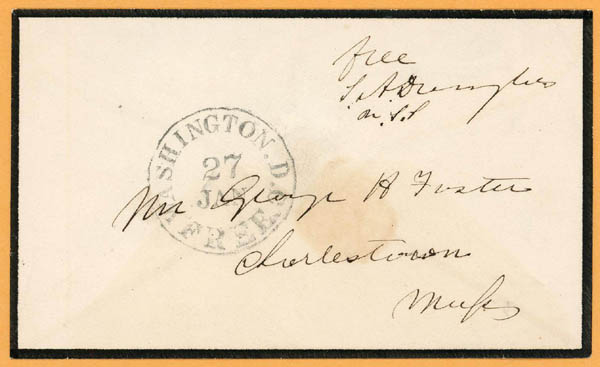 free
S. A. Douglas
U.S.S
WASHINGTON. D.C.
27
JAN
FREE
Mr George H Foster
Charlestown
Mass